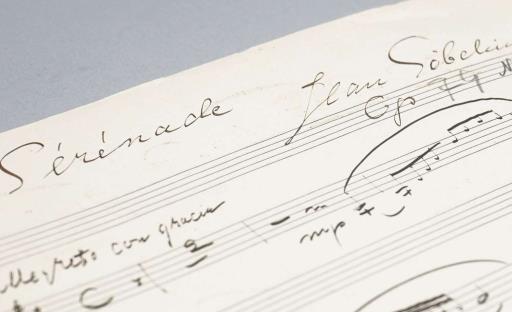 Sérénade Jean Sibelius
Op 74 N
Allegreto con grazia
mp